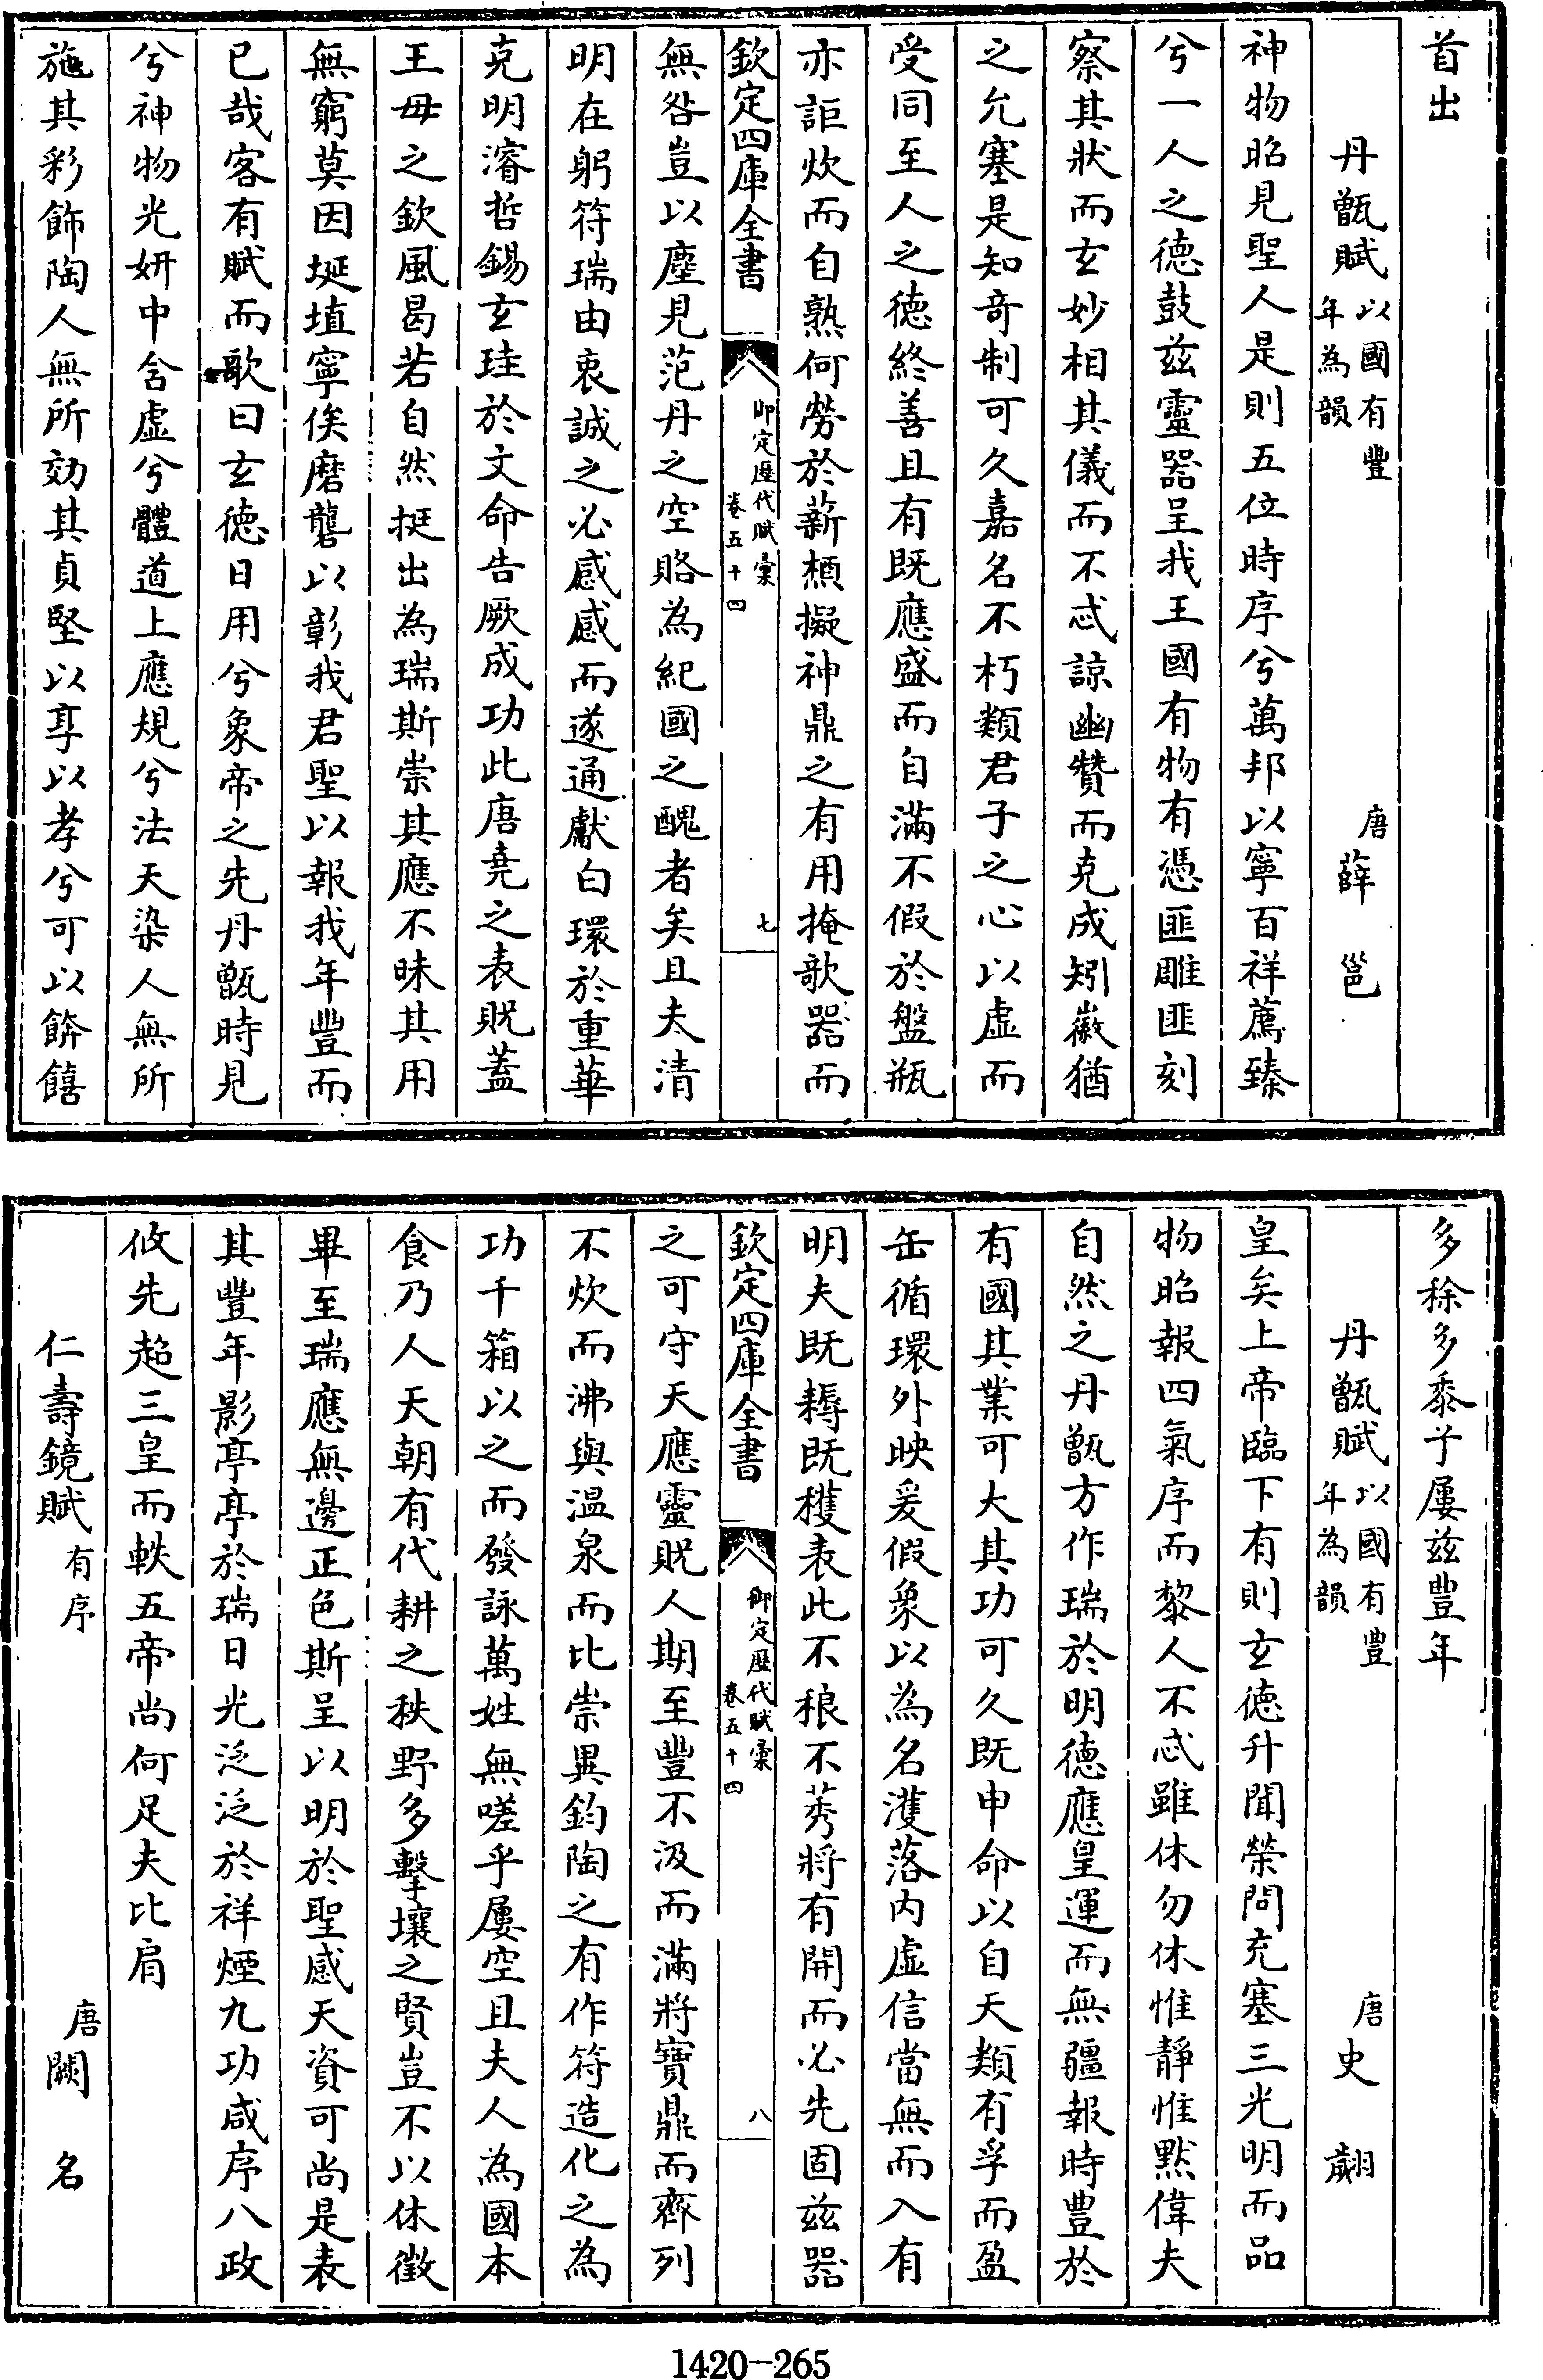 首出
丹甑賦以國有豐年為韻 唐薛邕
神物昭見聖人是則五位時序兮萬邦以寧百祥薦臻
兮一人之德鼓兹靈器呈我王國有物有憑匪雕匪刻
察其狀而玄妙相其儀而不忒諒幽贊而克成矧徽猶
之允塞是知奇制可久嘉名不朽類君子之心以虛而
受同至人之德終善且有既應盛而自滿不假於盤瓶
亦詎炊而自熟何勞於薪槱擬神鼎之有用掩歌器而
欽定四庫全書 御定歷代賦彙卷五十四 七
無咎豈以塵見范丹之空賂為紀國之醜者矣且夫清
明在躬符瑞由衷誠之必感感而遂通獻白環於重華
克明濬哲錫玄珪於文命告厥成功此唐堯之表貺蓋
王母之欽風曷若自然挺出為瑞斯崇其應不昧其用
無窮莫因埏埴寧俟磨礱以彰我君聖以報我年豐而
已哉客有賦而歌曰玄德日用兮象帝之先丹甑時見
兮神物光妍中含虛兮體道上應規兮法天染人無所
施其彩飾陶人無所効其貞堅以享以孝兮可以餴饎
多稌多黍兮屢兹豐年
丹甑賦以國有豐年為韻 唐史翽
皇矣上帝臨下有則玄德升聞榮問充塞三光明而品
物昭報四氣序而黎人不忒雖休勿休惟靜惟默偉夫
自然之丹甑方作瑞於明德應皇運而無疆報時豐於
有國其業可大其功可久既申命以自天類有孚而盈
缶循環外映爰假象以為名濩落内虛信當無而入有
明夫既耨既穫表此不稂不莠將有開而必先固兹器
欽定四庫全書 御定歷代賦彙卷五十四 八
之可守天應靈貺人期至豐不汲而滿將寶鼎而齊列
不炊而沸與温泉而比崇異鈞陶之有作符造化之為
功千箱以之而發詠萬姓無嗟乎屢空且夫人為國本
食乃人天朝有代耕之秩野多擊壤之賢豈不以休徵
畢至瑞應無邊正色斯呈以明於聖感天資可尚是表
其豐年影亭亭於瑞日光泛泛於祥煙九功咸序八政
攸先超三皇而軼五帝尚何足夫比肩
仁壽鏡賦有序 唐闕名
1420-265